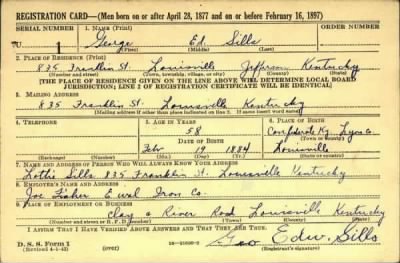 REGISTRATION CARD—(Men born on or after April 28, 1877 and on or before February 16, 1897)
SERIAL NUMBER 1. NAME (Print) ORDER NUMBER
U 1 George Ed. Sills
(First) (Middle) (Last)
2. PLACE OF RESIDENCE (Print)
835 Franklin St. Louisville Jefferson Kentucky
(Number and street) (Town, township, village, or city) (County) (State)
[THE PLACE OF RESIDENCE GIVEN ON THE LINE ABOVE WILL DETERMINE LOCAL BOARD
JURISDICTION; LINE 2 OF REGISTRATION CERTIFICATE WILL BE IDENTICAL]
3. MAILING ADDRESS
835 Franklin St. Louisville Kentucky
(Mailing address if other than place indicated on line 2. If same insert word same)
4. TELEPHONE 5. AGE IN YEARS 6. PLACE OF BIRTH
58 Ky. Lyon Co.
DATE OF BIRTH (Town or county)
Febr 19 1884 Louisville
(Exchange) (Number) (Mo.) (Day) (Yr.) (State or country)
7. NAME AND ADDRESS OF PERSON WHO WILL ALWAYS KNOW YOUR ADDRESS
Lottie Sills 835 Franklin St. Louisville Kentucky
8. EMPLOYER'S NAME AND ADDRESS
Joe Iron Co.
9. PLACE OF EMPLOYMENT OR BUSINESS
Clay & River Road Louisville Kentucky
(Number and street or R. F. D. number) (Town) (County) (State)
I AFFIRM THAT I HAVE VERIFIED ABOVE ANSWERS AND THAT THEY ARE TRUE.
D. S. S. Form 1
(Revised 4-1-42) (over) Geo Edw. Sills
(Registrant's signature)